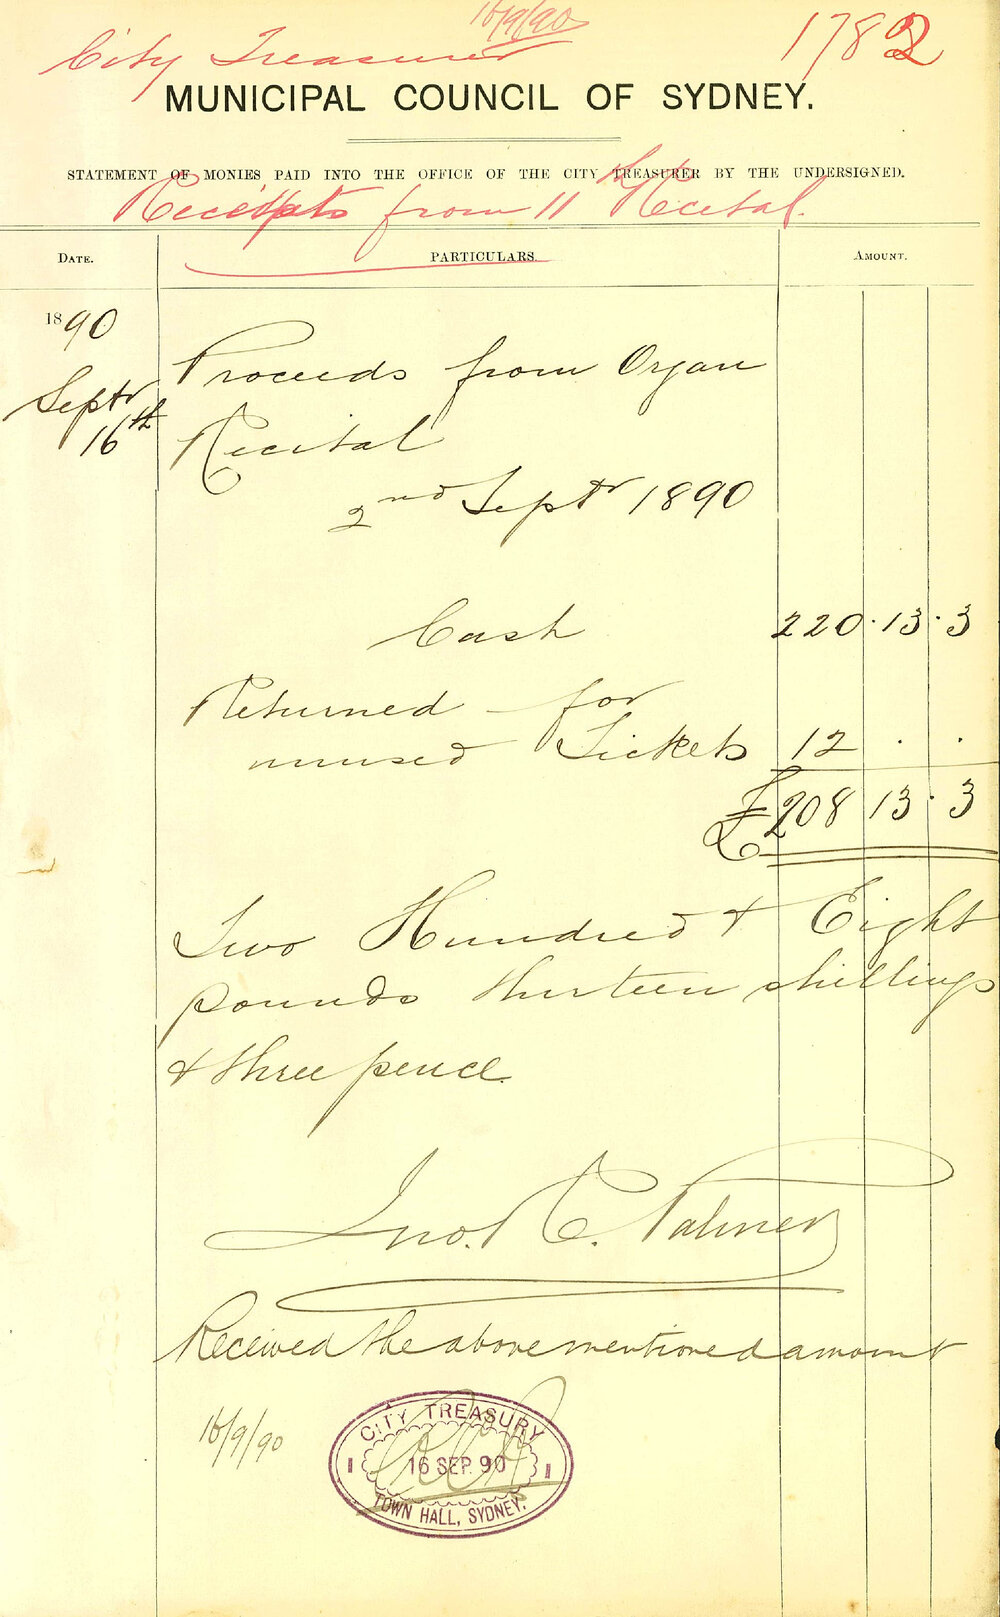 16/9/90
City Treasurer
1782
MUNICIPAL COUNCIL OF SYDNEY.
STATEMENT OF MONIES PAID INTO THE OFFICE OF THE CITY TREASURER BY THE UNDERSIGNED.
Receipts from 11th Recital.
DATE. PARTICULARS. AMOUNT.
1890
Septr 16th
Proceeds from Organ
Recital
2nd Septr 1890
Cash 220.13.3
Returned for
unused Tickets 12 . .
£208 13.3
Two Hundred & Eight
pounds thirteen shillings
& three pence
Jno. R. C. Palmer
Received the above mentioned amount
16/9/90
CITY TREASURY
16 SEP. 90
TOWN HALL, SYDNEY.